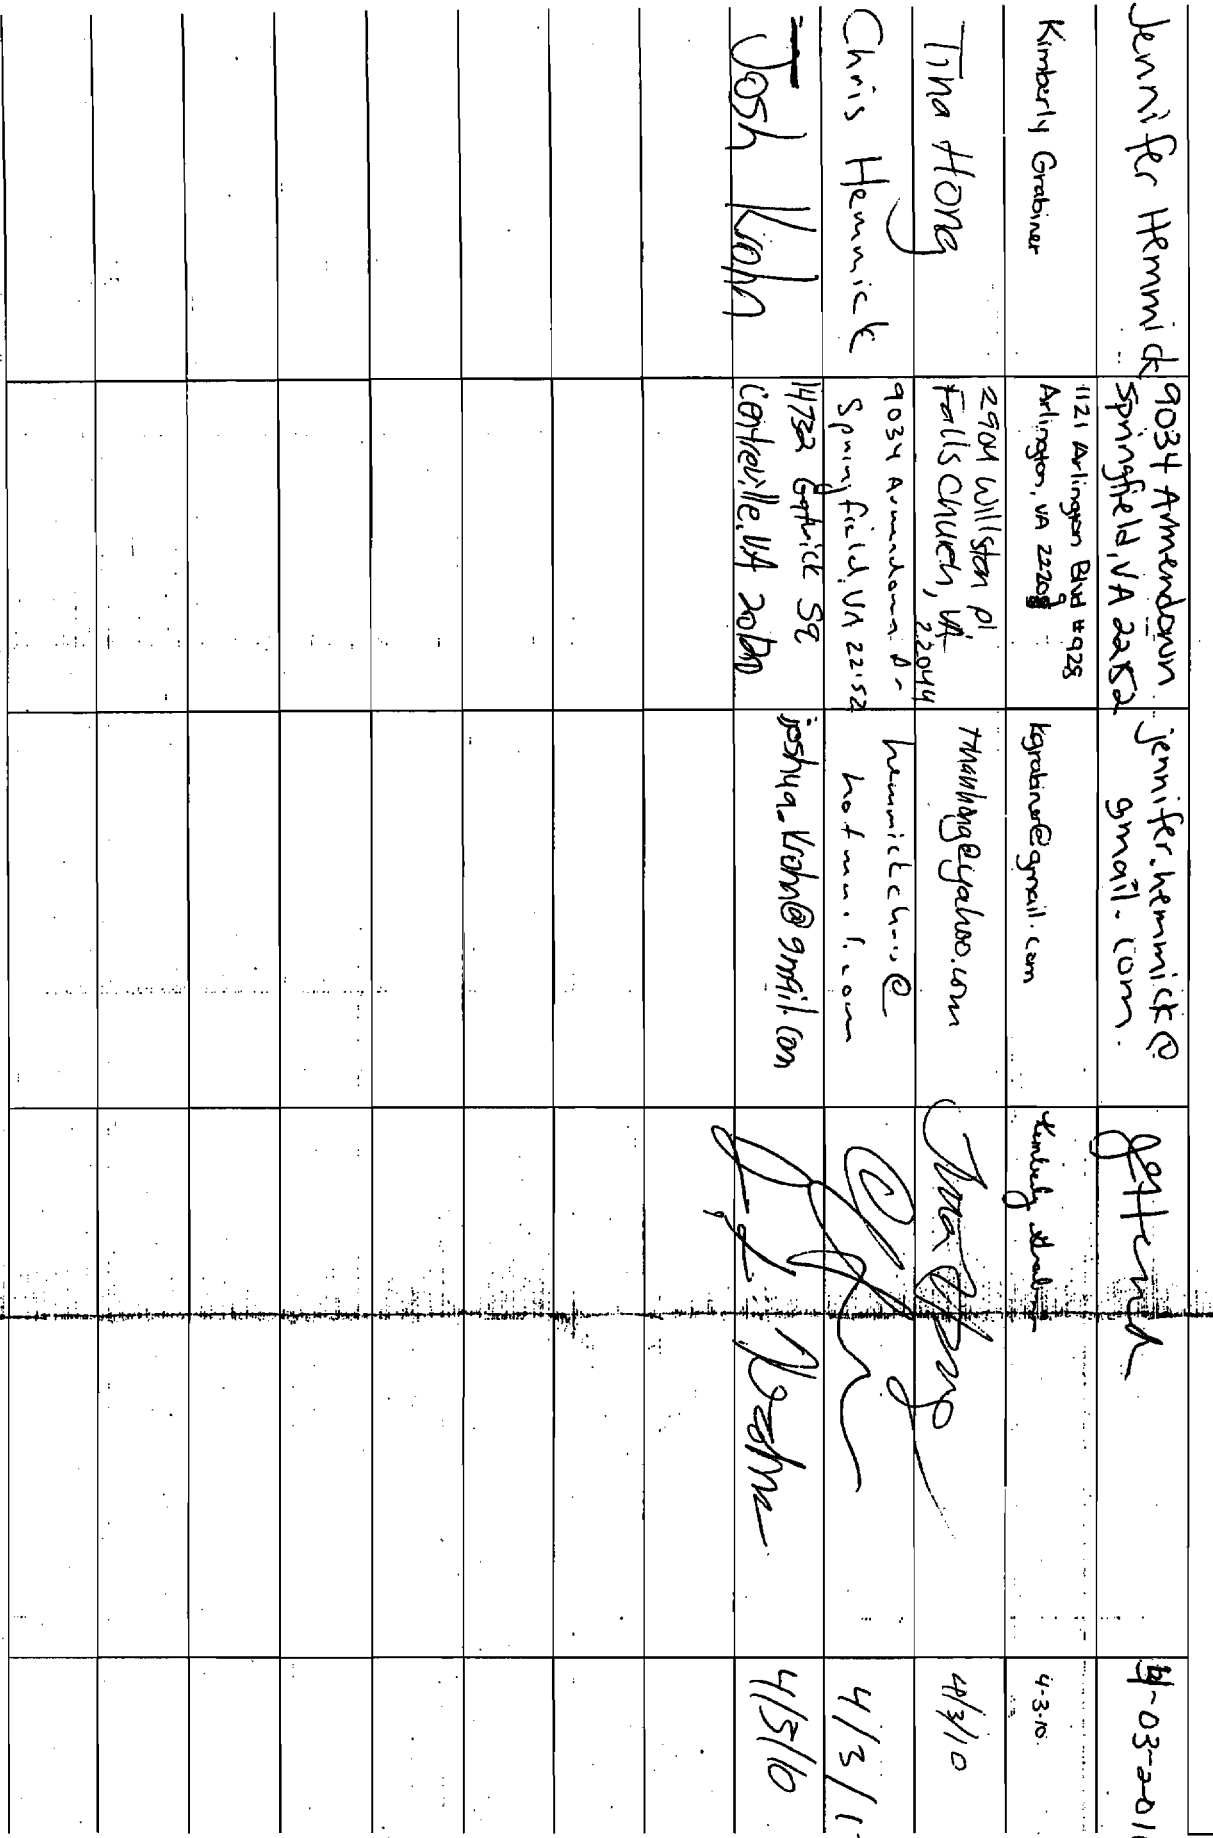 Jennifer Hemmick
9034 Arrendown
Springfield, VA 22152
jennifer.hemmick@
gmail.com.
4-03-201
Kimberly Grabiner
1121 Arlington Blvd #928
Arlington, VA 22209
kgrabiner@gmail.com
Kimberly
4-3-10
Tina Hong
2904 Willston pl
Falls Church, VA
22044
@yahoo.com
Tina
4/3/10
Chris Hemmick
9034 Dr
Springfield, VA 22152
@
hotmail.com
4/3/1
Josh Krohn
14732 Sq
Centreville, VA
joshua.krohn@gmail.com
Krohn
4/3/10